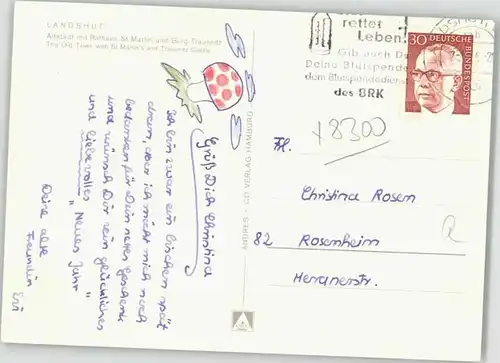 LANDSHUT
Altstadt mit Rathaus, St. Martin und Burg Trausnitz
The Old Town with St. Martin's and Trausnitz Castle
Grüß Dich Christina
Ich bin zwar ein bischen spät
dran, aber ich möcht mich noch
bedanken für Dein nettes Geschenk
und wünsch Dir ein glückliches
und liebevolles
„Neues Jahr"
Deine alte
Freundin
Evi
ANDRES · CO VERLAG HAMBURG
rettet
Leben!
Gib auch Du
Deine Blutspende
dem Blutspendedienst
des BRK
30
DEUTSCHE BUNDESPOST
+8300
Frl.
Christina Rosen
82 Rosenheim
Herrenerstr.